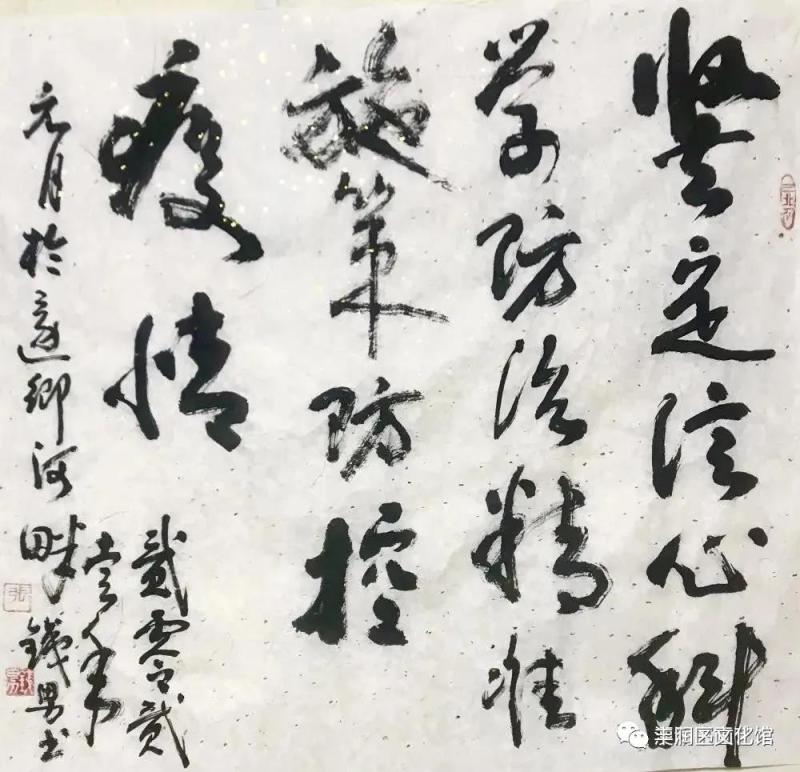 坚定信心科
学防治精准
施策防控
疫情
贰零贰
壹年
元月于还乡河畔
铁男书
张
丰润区文化馆